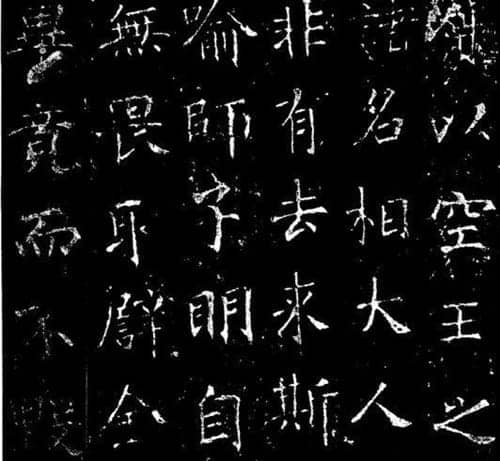 以空王之
諸名相大人
非有去来斯
喻師子明自
無畏取譬金
畢竟而不